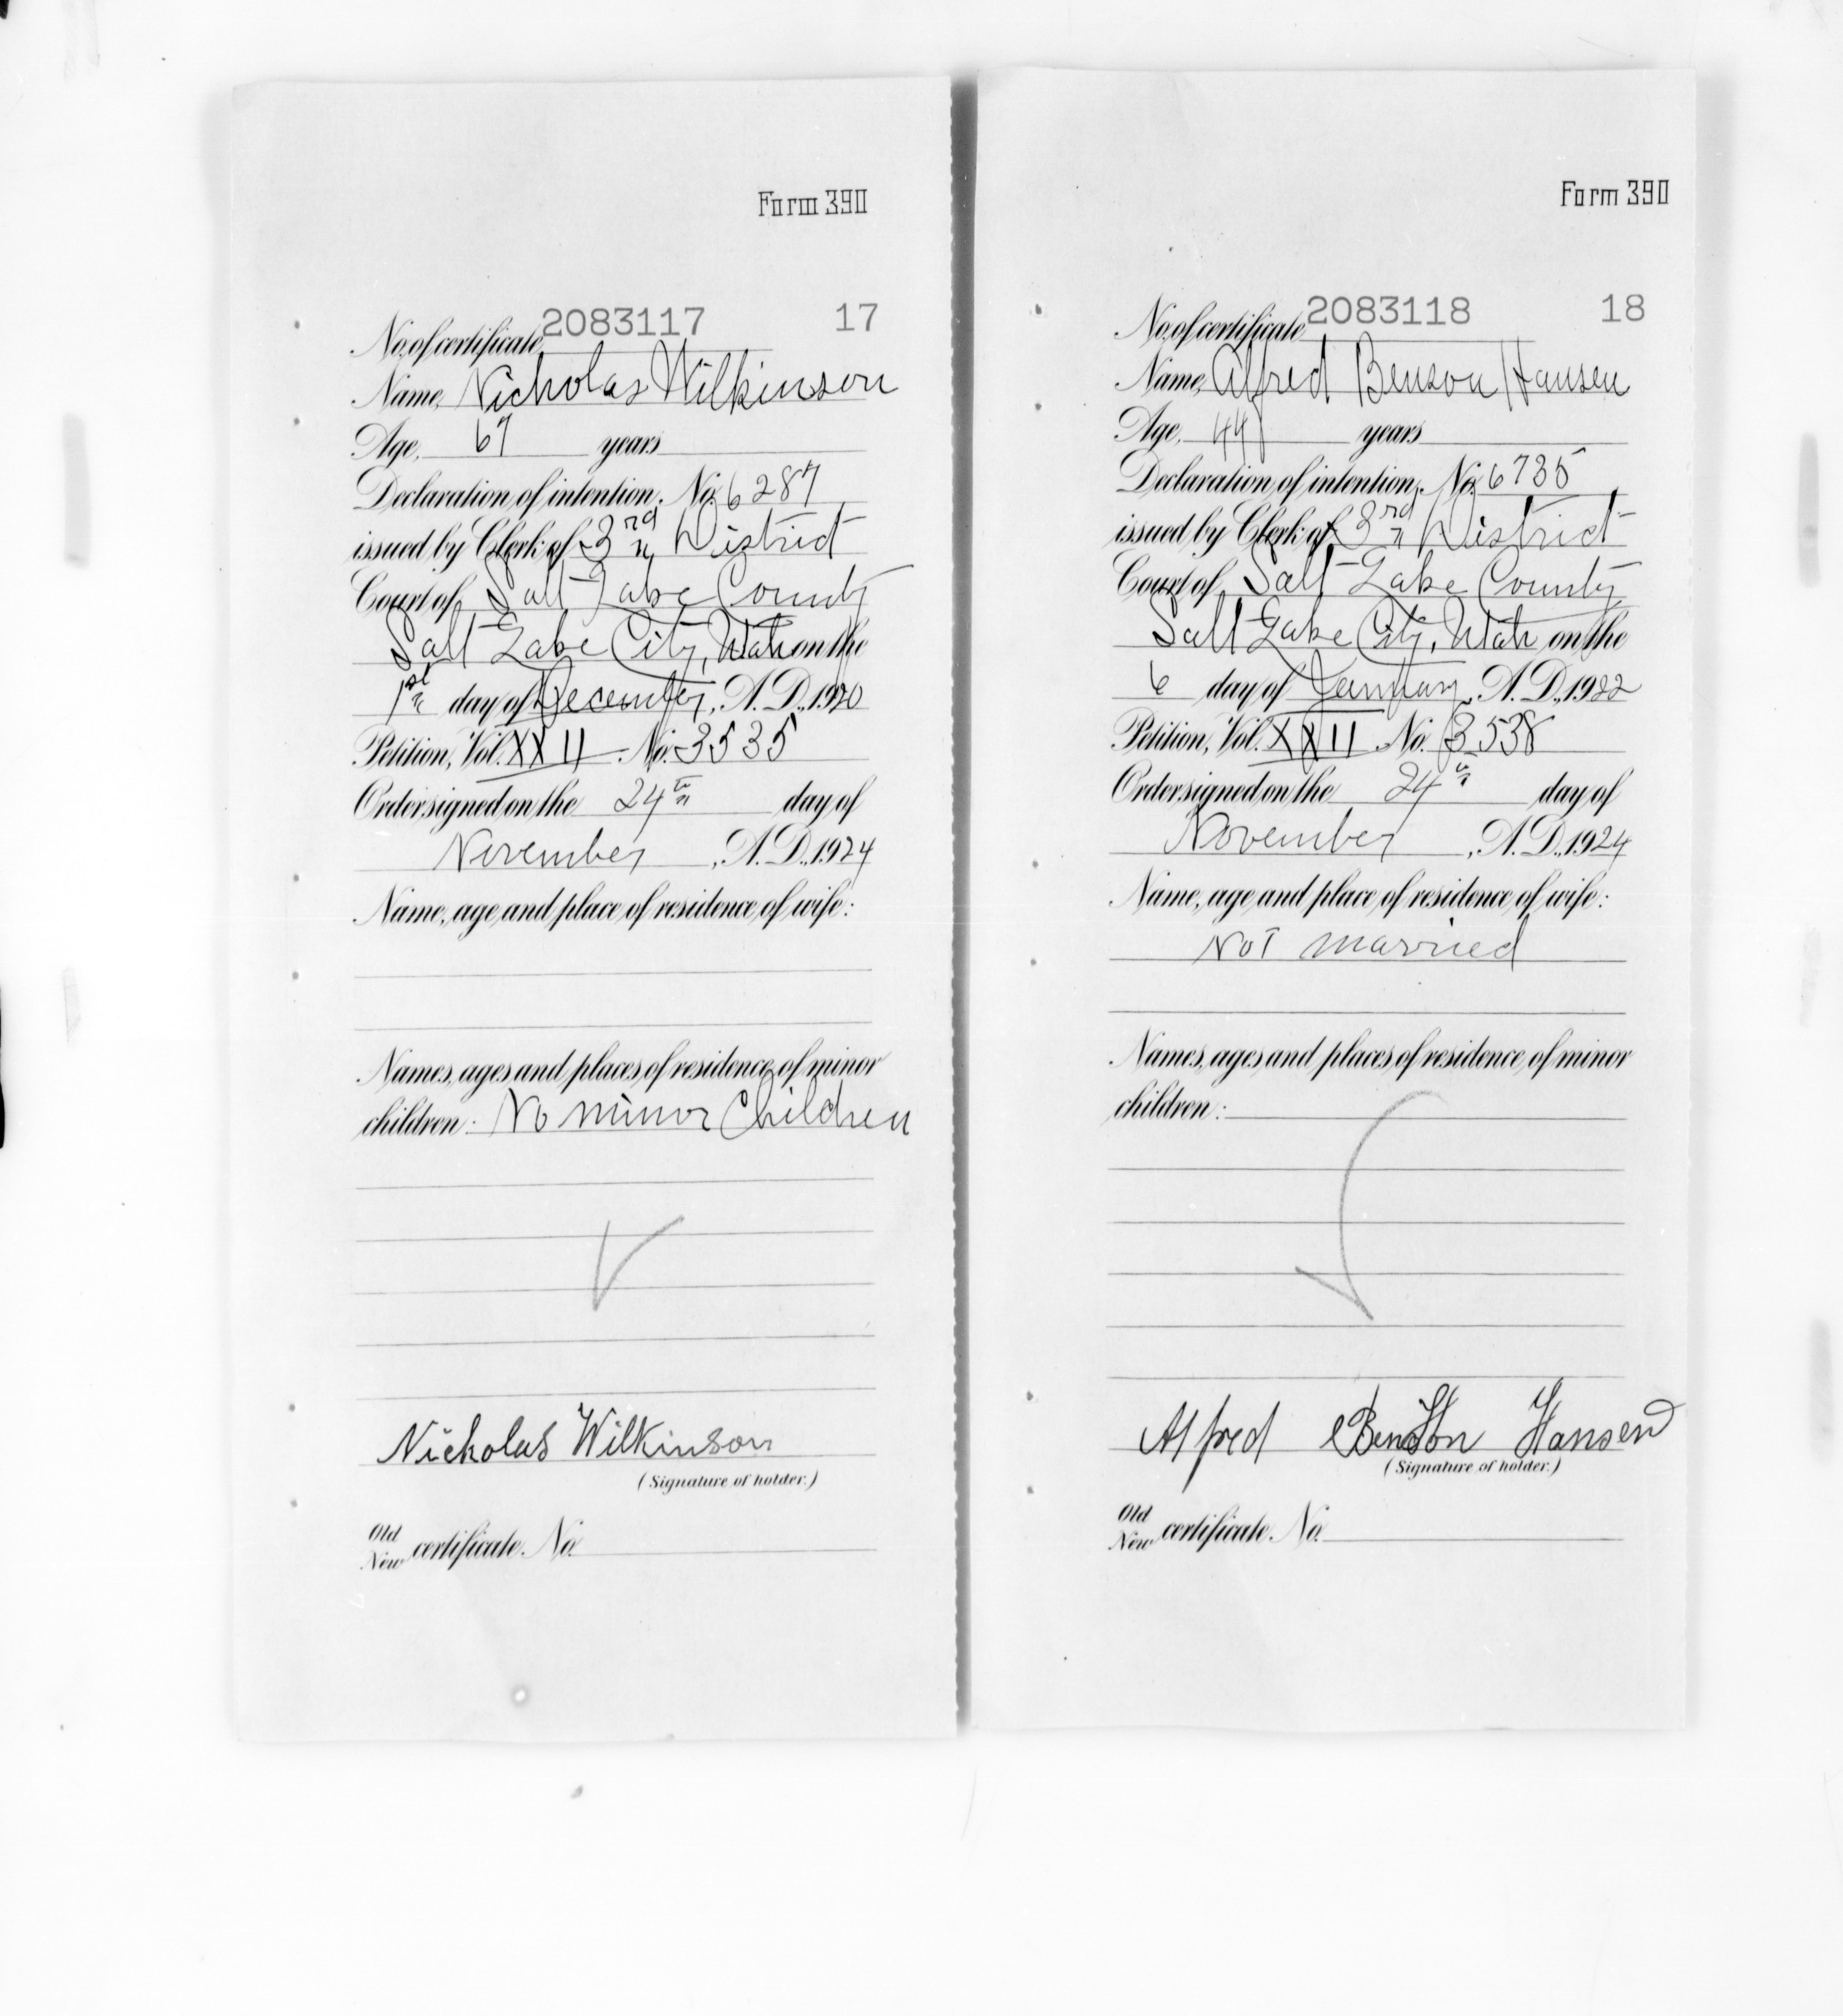 Form 390
No. of certificate, 2083117 17
Name, Nicholas Wilkinson
Age, 67 years
Declaration of intention, No. 6287
issued by Clerk of 3rd District
Court of Salt Lake County
Salt Lake City, Utah on the
1st day of December, A. D., 1920
Petition, Vol. XXII No. 3535
Order signed on the 24th day of
November, A. D., 1924
Name, age and place of residence of wife:
Names, ages and places of residence of minor
children: No minor Children
Nicholas Wilkinson
(Signature of holder.)
Old
New certificate No.
Form 390
No. of certificate, 2083118 18
Name, Alfred Benson Hansen
Age, 44 years
Declaration of intention, No. 6735
issued by Clerk of 3rd District
Court of Salt Lake County
Salt Lake City, Utah on the
6 day of January, A. D., 1922
Petition, Vol. XXII No. 3538
Order signed on the 24th day of
November, A. D., 1924
Name, age and place of residence of wife:
Not married
Names, ages and places of residence of minor
children:
Alfred Benson Hansen
(Signature of holder.)
Old
New certificate No.